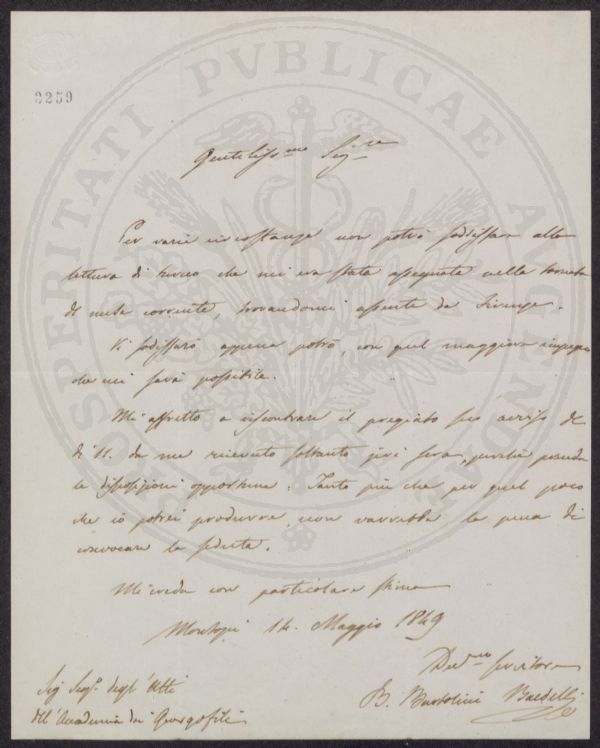 2259
PROSPERITATI PVBLICAE AVGENDAE
Gentiliss.mo Sig.re
Per varie circostanze non potrò sodisfare alla
lettura di turno che mi era stata assegnata nella tornata
di corrente, trovandomi assente da Firenze.
Vi sodisfarò appena potrò, con quel maggiore impegno
che mi sarà possibile.
Mi affretto a riscontrare il pregiato suo avviso de
dì 11. da me ricevuto soltanto jeri sera, perchè prenda
le disposizioni opportune. Tanto più che per quel poco
che io potrei produrre, non varrebbe la pena di
convocare la seduta.
Mi creda con particolare stima
Montopi 14. Maggio 1849
Dev.mo servitore
B. Bartolini Baldelli
Sig Seg.o degl'Atti
dell'Accademia dei Georgofili